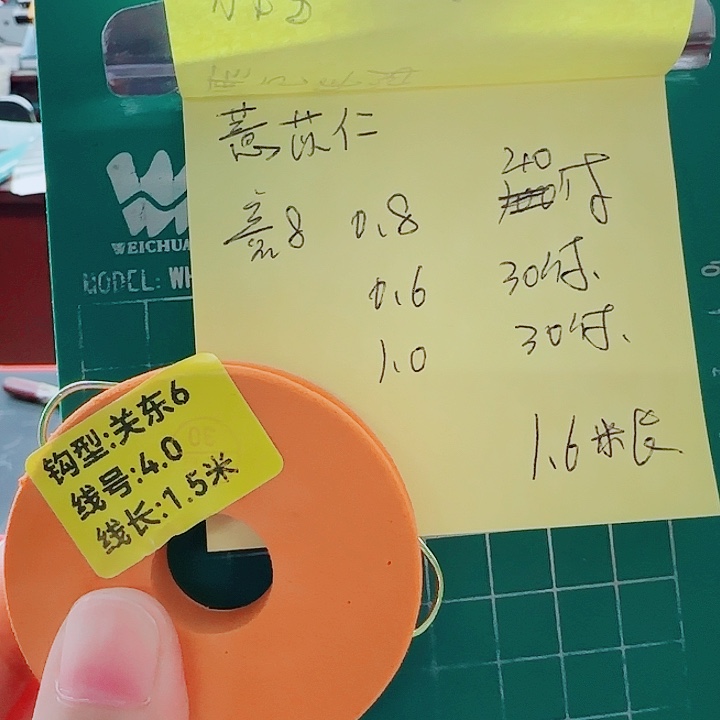 薏苡仁
0.8 240付
0.6 30付
1.0 30付
1.6米长
WEICHUA
MODEL: WH
钩型:关东6
线号:4.0
线长:1.5米